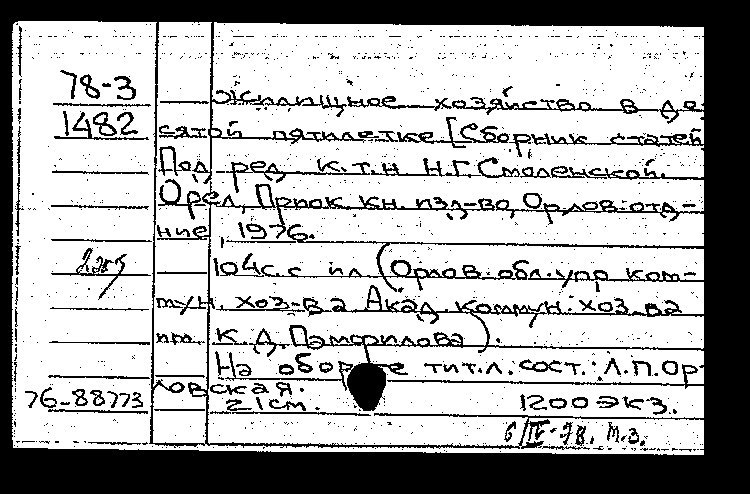 78-3
Жилищное хозяйство в де-
1482
сятой пятилетке [Сборник статей
Под ред. к.т.н Н.Г.Смоленской.
Орел, Приок. кн. изд-во, Орлов. отд-
ние, 1976.
104с. с ил. (Орлов. обл. упр. ком-
мун. хоз-ва Акад. коммун. хоз-ва
им. К.Д.Памфилова).
На обороте тит.л. сост.: Л.П.Ор-
ловская.
76-88773
21см. 1200 экз.
6/IV-78. м.з.